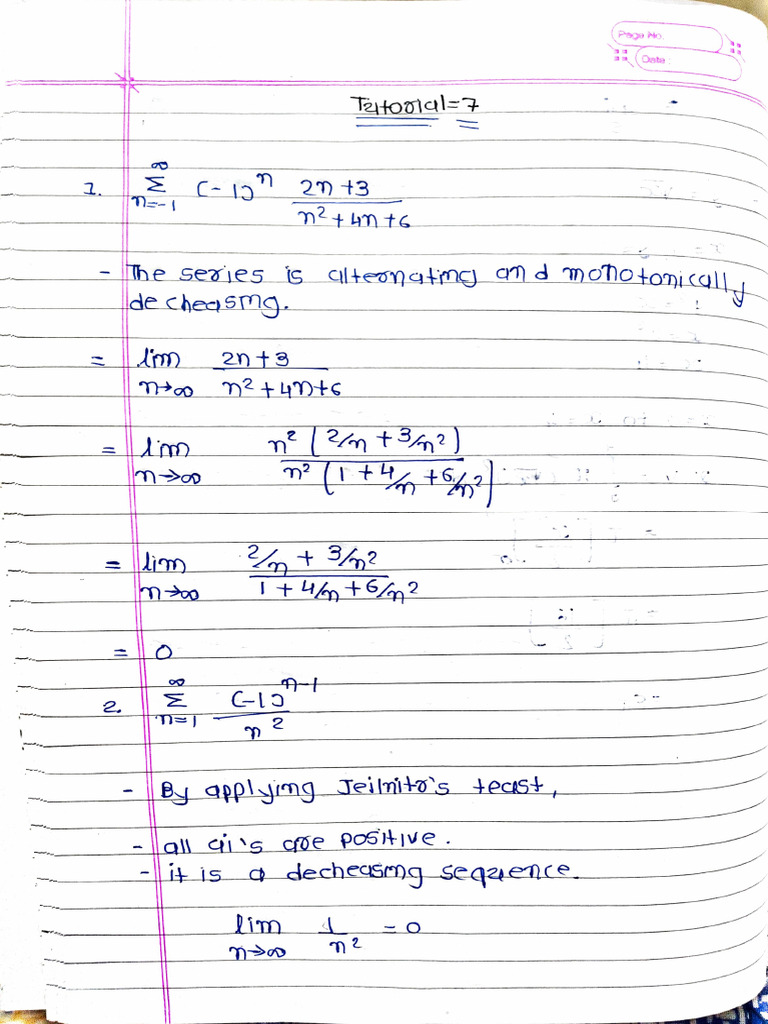 Page No.
Date:
Tutorial = 7
1. ∞ Σ n=-1 (-1)^n 2n+3 / n²+4n+6
- The series is alternating and monotonically
decheasing.
= lim n→∞ 2n+3 / n²+4n+6
= lim n→∞ n² (2/n + 3/n²) / n² (1 + 4/n + 6/n²)
= lim n→∞ 2/n + 3/n² / 1 + 4/n + 6/n²
= 0
2. ∞ Σ n=1 (-1)^n-1 / n²
- By applying Jeilnitr's teast,
- all ai's are positive.
- it is a decheasing sequence.
lim n→∞ 1/n² = 0